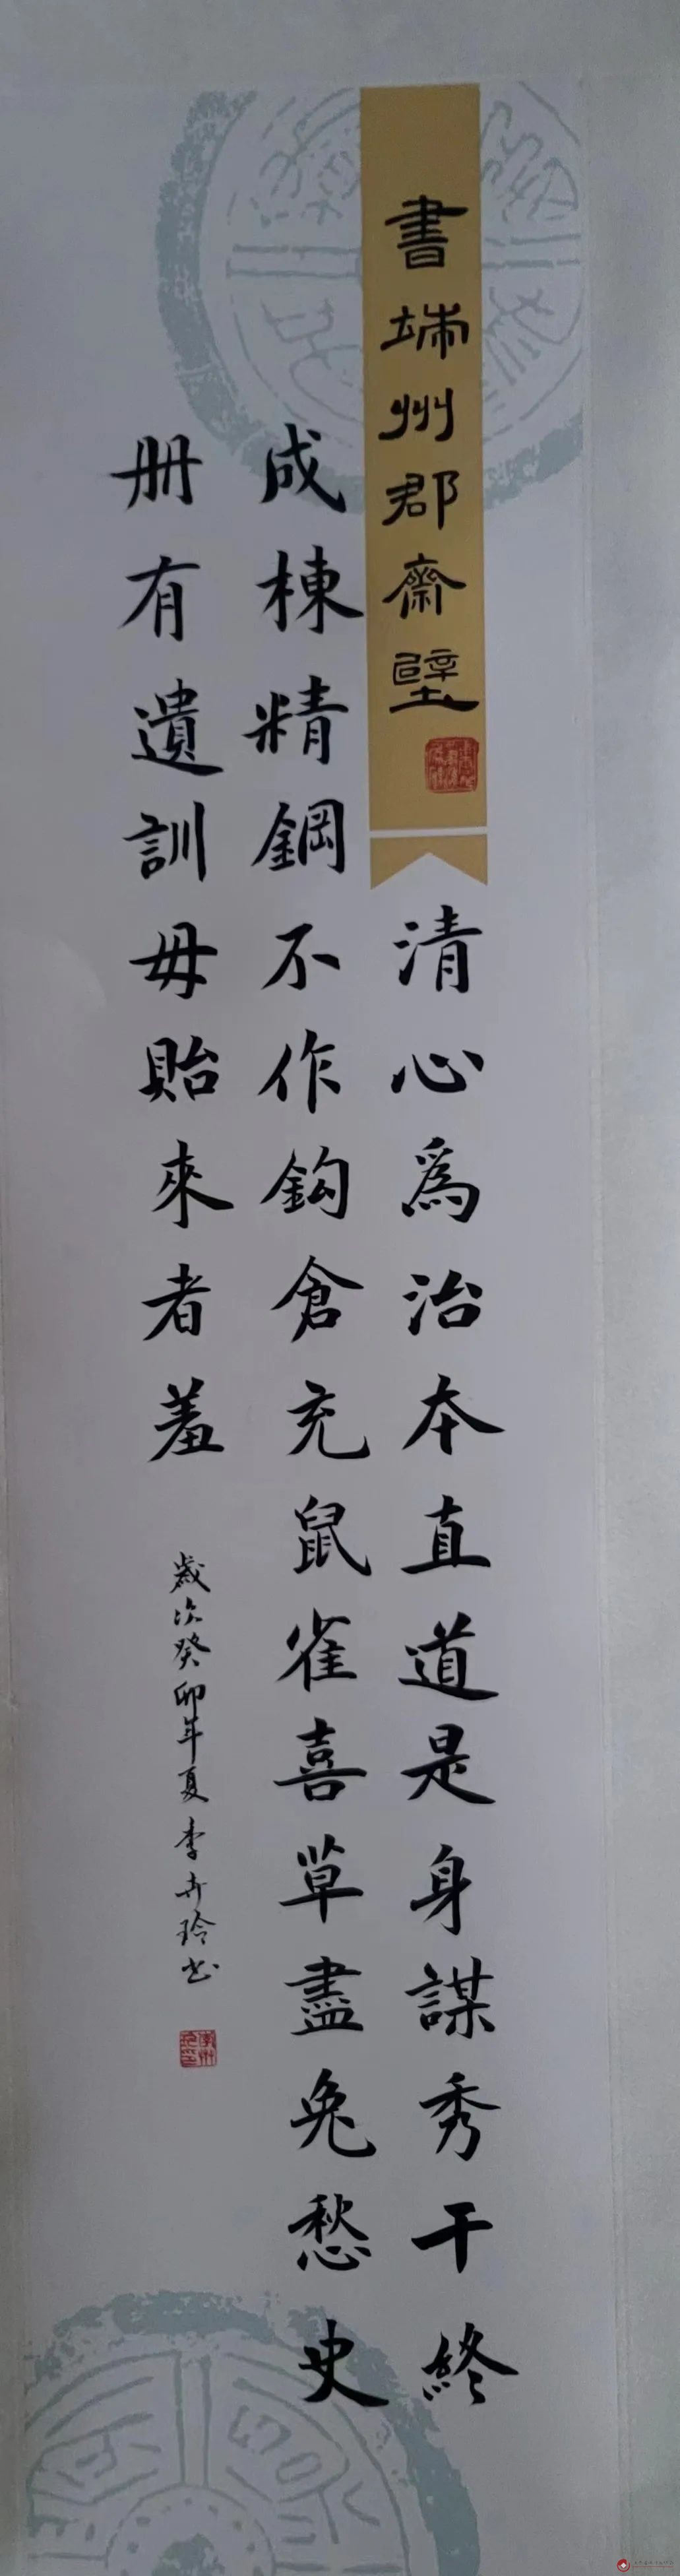 書端州郡齋壁
清心為治本直道是身謀秀干終
成棟精鋼不作鈎倉充鼠雀喜草盡兔愁史
册有遺訓毋貽來者羞
歲次癸卯年夏李卉玲书